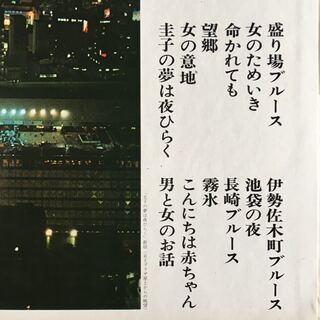 盛り場ブルース
女のためいき
命かれても
望郷
女の意地
圭子の夢は夜ひらく
伊勢佐木町ブルース
池袋の夜
長崎ブルース
霧氷
こんにちは赤ちゃん
男と女のお話